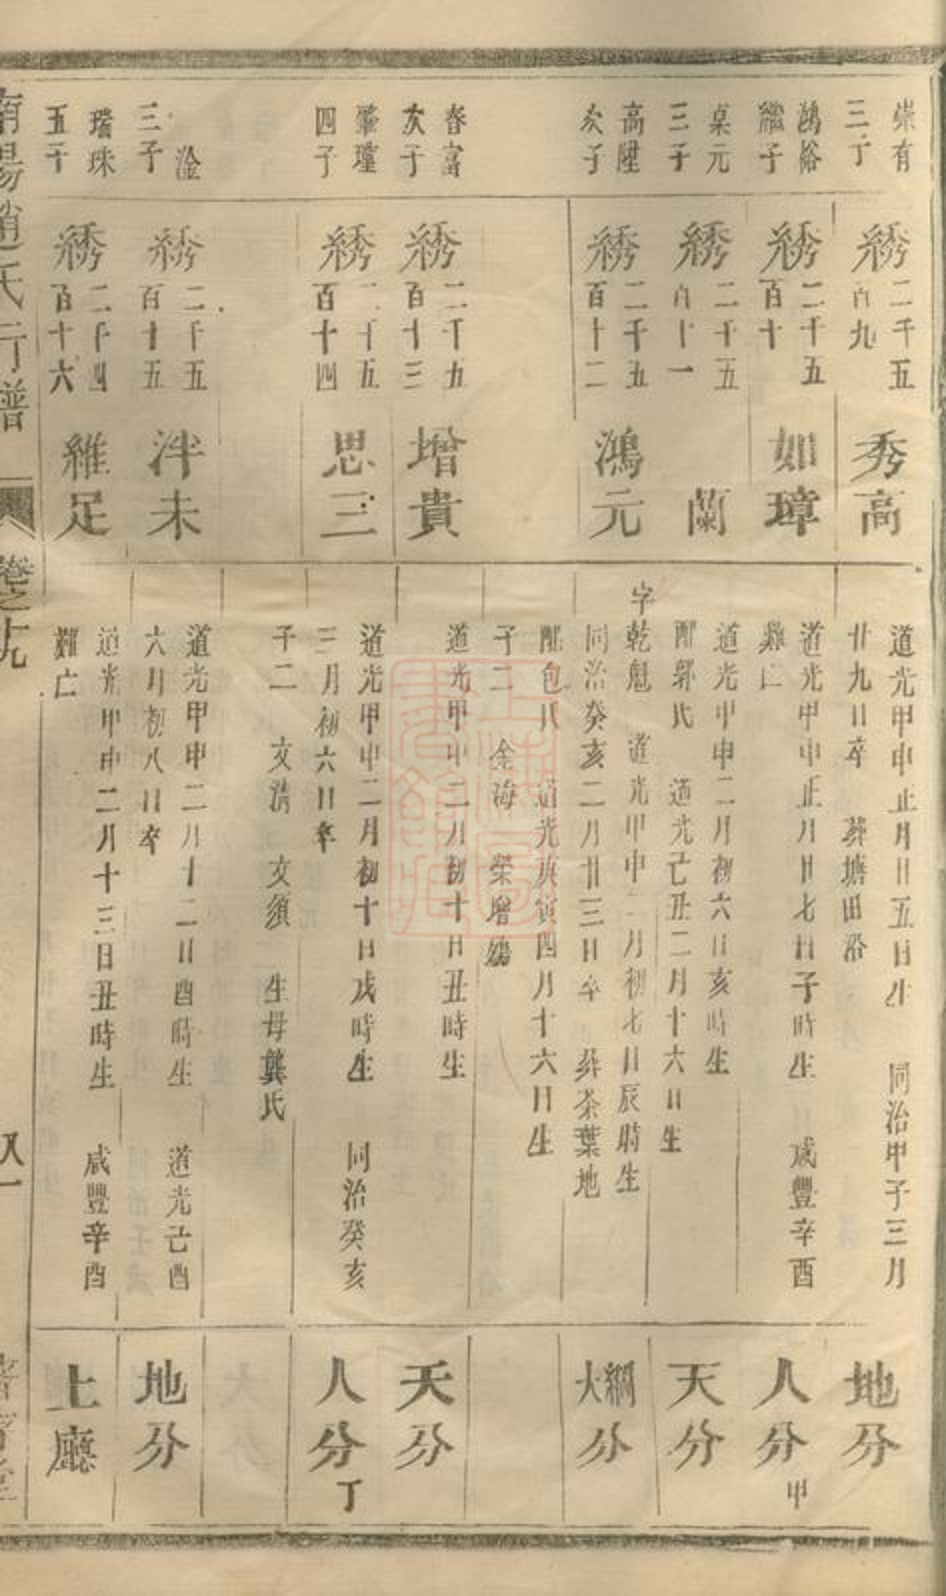 崇有
三子
綉二千五
百九
秀高
道光甲申正月廿五日生 同治甲子三月
廿九日卒 葬塘田沿
地分
鴻裕
繼子
綉二千五
百十
如璋
道光甲申正月廿七日子時生 咸豐辛酉
難亡
人分甲
桌元
三子
綉二千五
百十一
蘭
道光甲申二月初六日亥時生
配郭氏 道光己丑二月十六日生
天分
高陞
次子
綉二千五
百十二
鴻元
字乾魁 道光甲申二月初七日辰時生
同治癸亥二月廿三日卒 葬茶葉地
配包氏 道光庚寅四月十六日生
子二 金海 榮增殤
大綱分
春富
次子
綉二千九
百十三
增貴
道光甲申二月初十日丑時生
天分
肇瓊
四子
綉二千五
百十四
思三
道光甲申二月初十日戌時生 同治癸亥
三月初六日卒
子二 文清 文須 生母龔氏
人分丁
淦
三子
綉二千五
百十五
泮未
道光甲申二月十二日酉時生 道光己酉
六月初八日卒
地分
瑞珠
五子
綉二千四
百十六
維足
道光甲申二月十三日丑時生 咸豐辛酉
難亡
上廳
南陽趙氏行譜
卷之九
八一